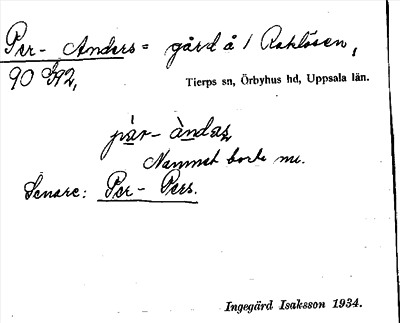 Per- Anders = gård å 1 Rocklösen,
90 892,
Tierps sn, Örbyhus hd, Uppsala län.
pär- àndaṣ
Namnet borta nu.
Senare: Per- Pers.
Ingegärd Isaksson 1934.